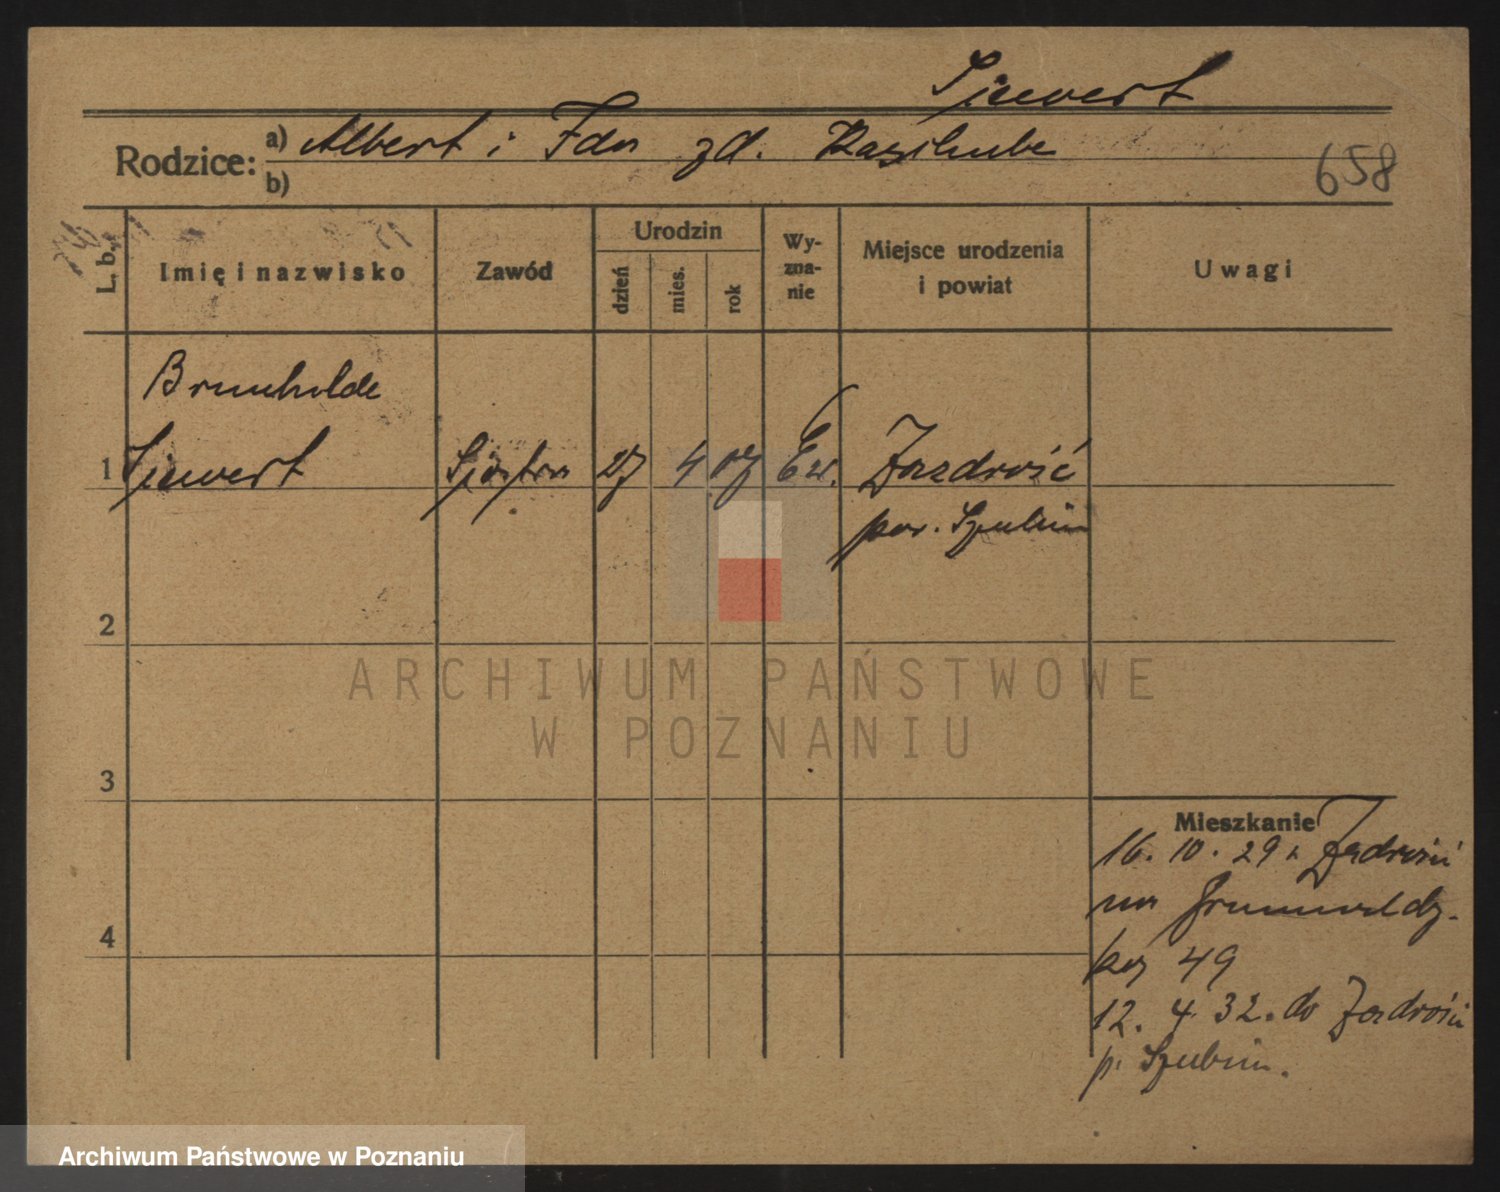 Siewert
Rodzice: a) Albert i Ida zd. Raschube
b)
658
L. b.
Imię i nazwisko
Zawód
Urodzin
dzień
mies.
rok
Wy-
zna-
nie
Miejsce urodzenia
i powiat
Uwagi
Brunhilde
1 Siewert
Siostra 27 4 07 Ew. Zazdrość
pow. Szubin
2
3
4
Mieszkanie
16. 10. 29 z Zazdrości
na Grunwaldz-
ką 49
12. 4 32. do Zazdrości
p. Szubin.
ARCHIWUM PAŃSTWOWE
W POZNANIU
Archiwum Państwowe w Poznaniu